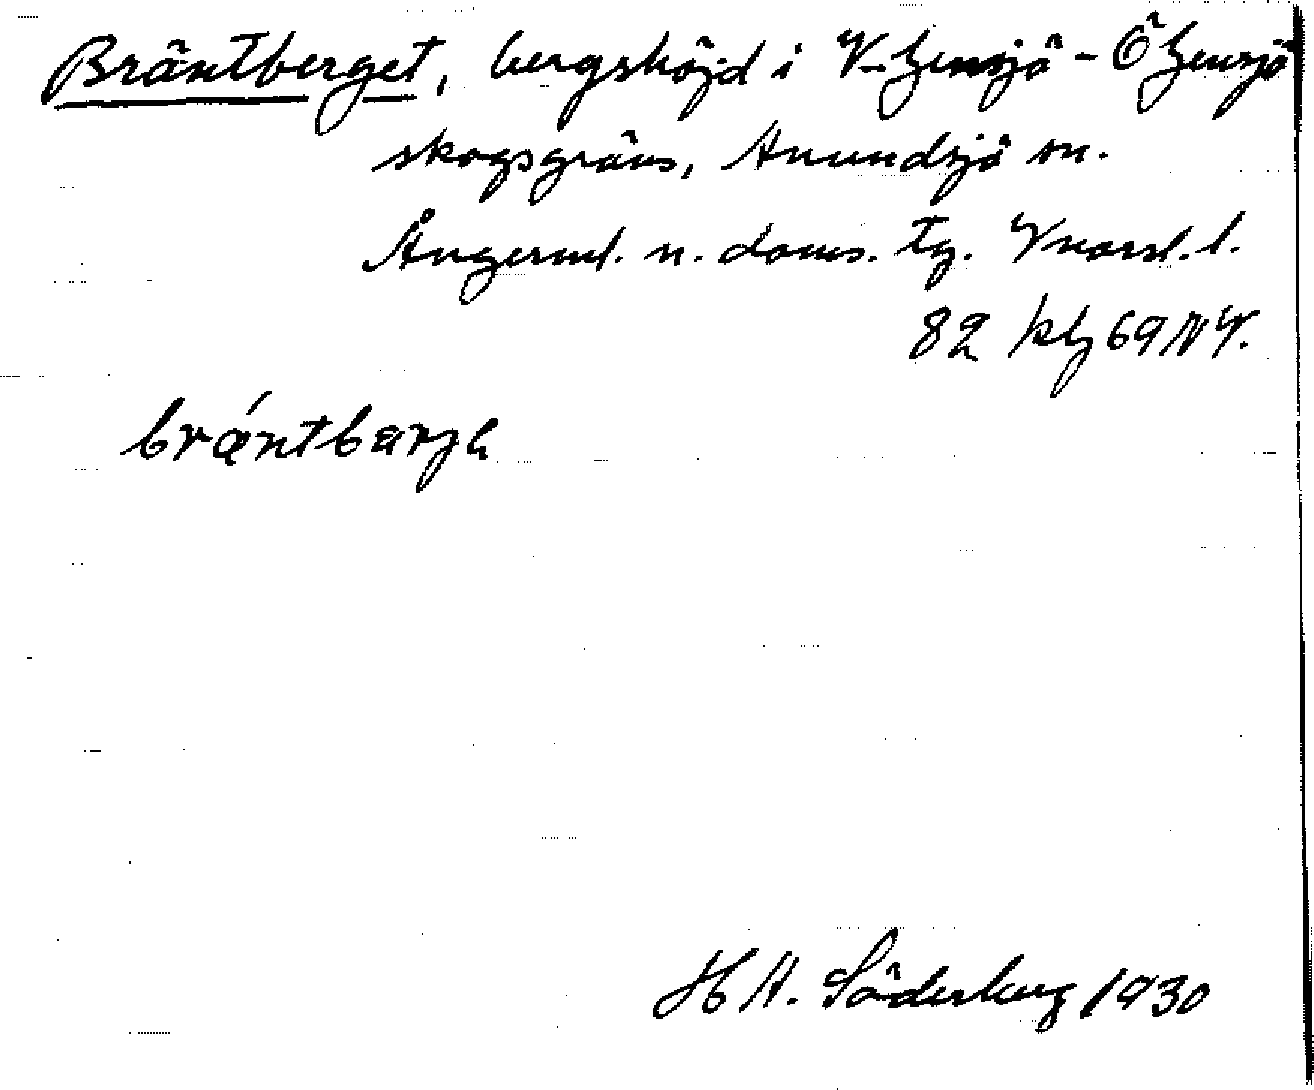 Bräntberget, bergshöjd i V-Gensjö - Ö Gensjö
skogsgräns, Anundsjö sn.
Ångerml. n. doms. tg. Vnorrl. l.
82 kbl 69 NV.
bräntbärjə
H A. Söderberg 1930